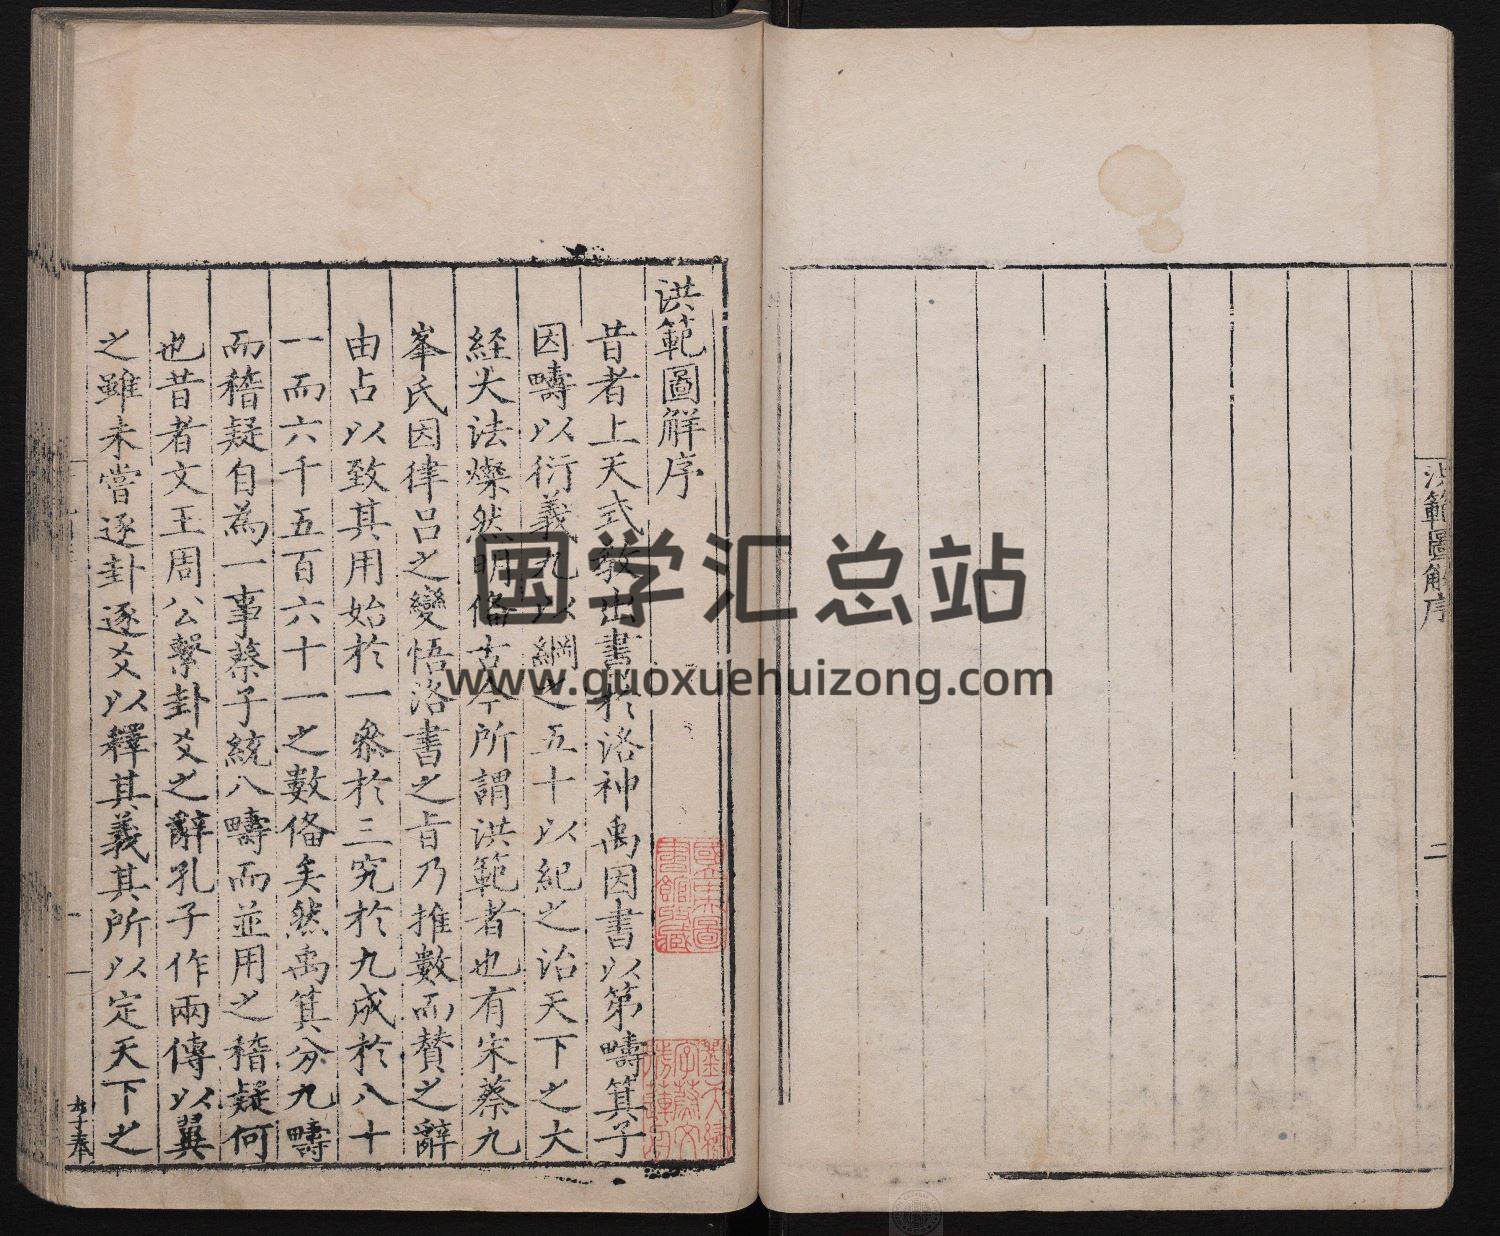 洪範圖解序
二
洪範圖解序
昔者上天式教出書於洛神禹因書以第疇箕子
因疇以衍義九以綱之五十以紀之治天下之大
経大法燦然明俻古今所謂洪範者也有宋蔡九
峯氏因律呂之變悟洛書之旨乃推數而賛之辭
由占以致其用始於一叅於三究於九成於八十
一而六千五百六十一之數俻矣然禹箕分九疇
而稽疑自為一事蔡子統八疇而並用之稽疑何
也昔者文王周公繫卦爻之辭孔子作兩傳以翼
之雖未嘗逐卦逐爻以釋其義其所以定天下之
李奉
國立北平圖
書館收藏
国学汇总站
www.guoxuehuizong.com